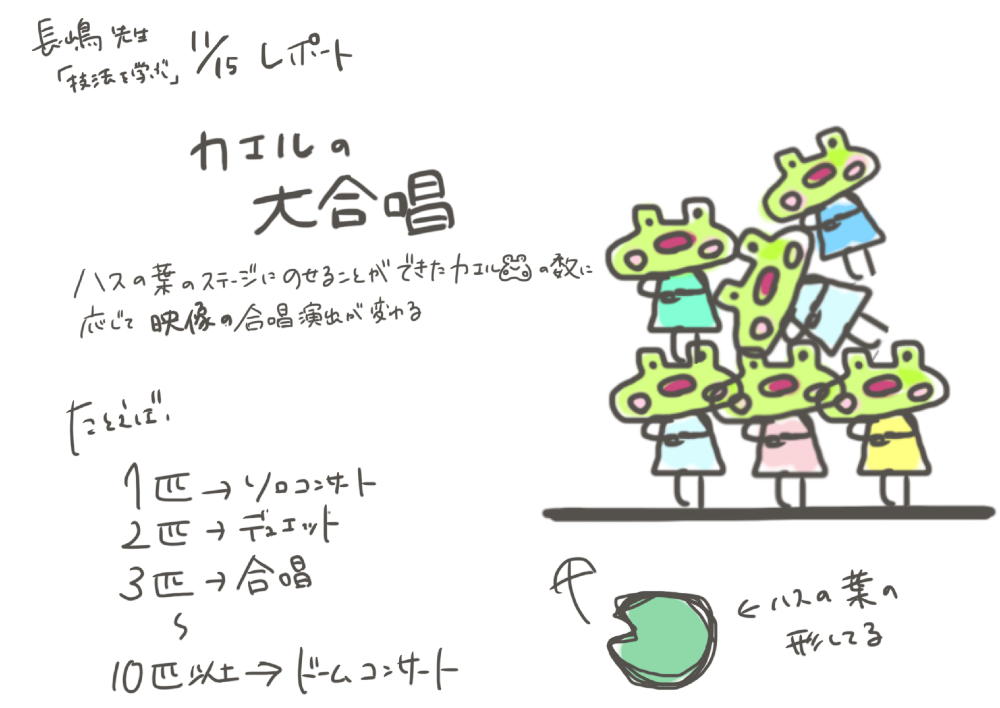 長嶋先生
「技法を学ぶ」
11/15 レポート
カエルの
大合唱
ハスの葉のステージにのせることができたカエルの数に
応じて映像の合唱演出が変わる
たとえば、
1匹→ソロコンサート
2匹→デュエット
3匹→合唱
〜
10匹以上→ドームコンサート
←ハスの葉の
形してる